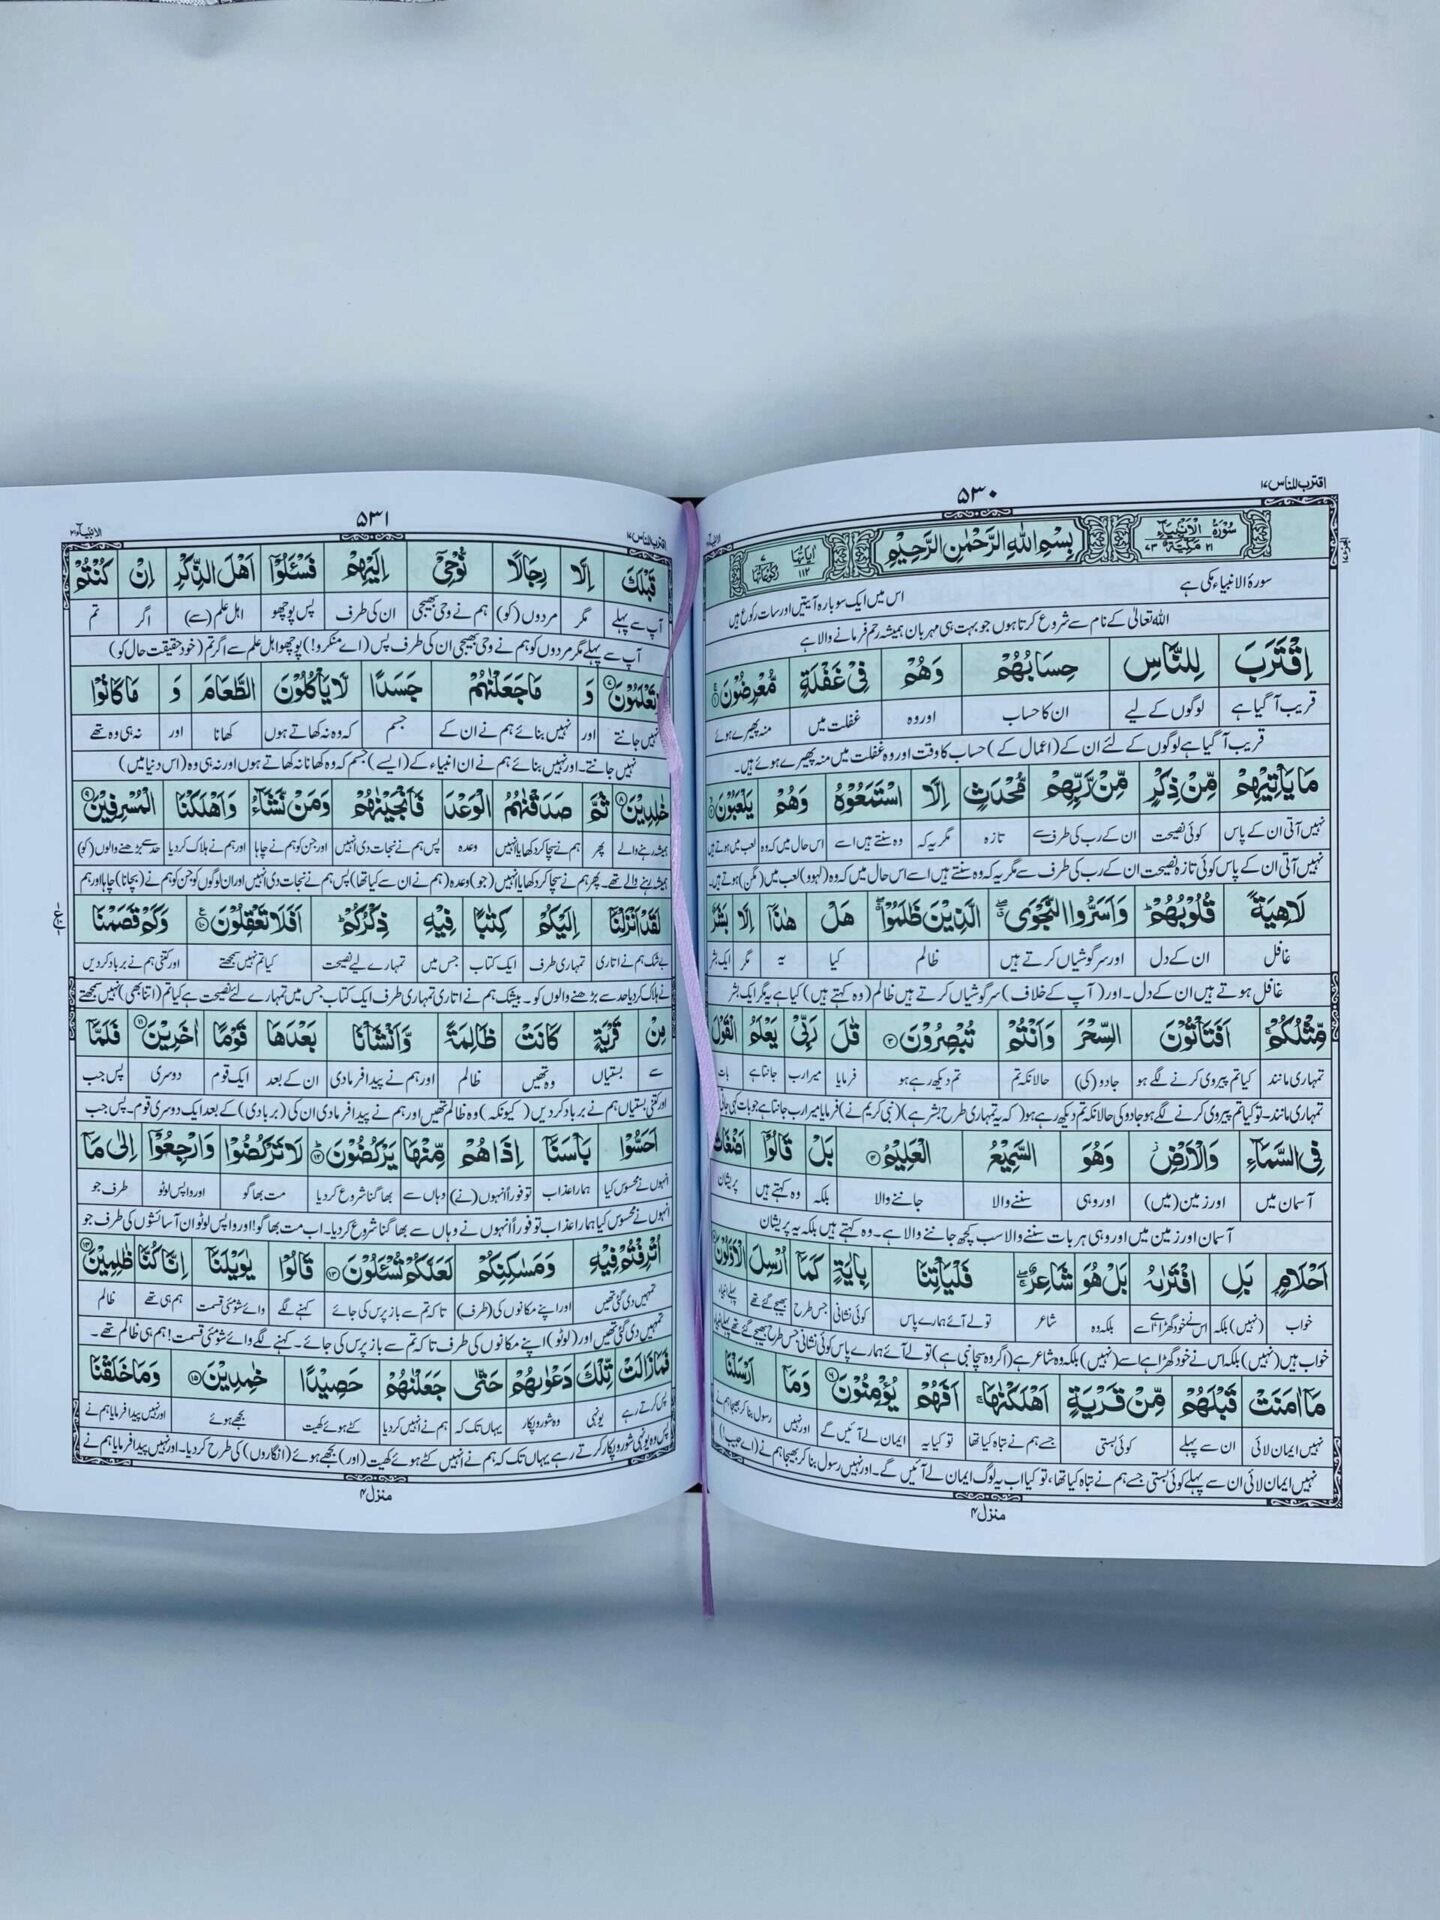 اقترب للناس ۱۷
۵۳۰
سُوْرَةُ الْاَنْۢبِيَآءِ مَكِّيَّةٌ
۲۱ ۷۳
بِسْمِ اللهِ الرَّحْمٰنِ الرَّحِيْمِ
اٰيَاتُهَا ۱۱۲
رُكُوْعَاتُهَا ۷
سورۃ الانبیاء مکی ہے
اس میں ایک سو بارہ آیتیں اور سات رکوع ہیں
اللہ تعالیٰ کے نام سے شروع کرتا ہوں جو بہت ہی مہربان ہمیشہ رحم فرمانے والا ہے
اِقْتَرَبَ لِلنَّاسِ حِسَابُهُمْ وَهُمْ فِيْ غَفْلَةٍ مُّعْرِضُوْنَ ۱
قریب آ گیا ہے لوگوں کے لیے ان کا حساب اور وہ غفلت میں منہ پھیرے ہوئے
قریب آ گیا ہے لوگوں کے لئے ان کے (اعمال کے) حساب کا وقت اور وہ غفلت میں منہ پھیرے ہوئے ہیں۔
مَا يَاْتِيْهِمْ مِّنْ ذِكْرٍ مِّنْ رَّبِّهِمْ مُّحْدَثٍ اِلَّا اسْتَمَعُوْهُ وَهُمْ يَلْعَبُوْنَ ۲
نہیں آتی ان کے پاس کوئی نصیحت ان کے رب کی طرف سے تازہ مگر یہ کہ وہ سنتے ہیں اسے اس حال میں کہ وہ لعب میں ہوتے ہیں
نہیں آتی ان کے پاس کوئی تازہ نصیحت ان کے رب کی طرف سے مگر یہ کہ وہ سنتے ہیں اسے اس حال میں کہ وہ (لہو و) لعب میں (مگن) ہوتے ہیں۔
لَاهِيَةً قُلُوْبُهُمْ وَاَسَرُّوا النَّجْوَى الَّذِيْنَ ظَلَمُوْا هَلْ هٰذَا اِلَّا بَشَرٌ
غافل ان کے دل اور سرگوشیاں کرتے ہیں ظالم کیا یہ مگر ایک بشر
غافل ہوتے ہیں ان کے دل۔ اور (آپ کے خلاف) سرگوشیاں کرتے ہیں ظالم (وہ کہتے ہیں) کیا ہے یہ مگر ایک بشر
مِّثْلُكُمْ اَفَتَاْتُوْنَ السِّحْرَ وَاَنْتُمْ تُبْصِرُوْنَ ۳ قٰلَ رَبِّيْ يَعْلَمُ الْقَوْلَ
تمہاری مانند کیا تم پیروی کرنے لگے ہو جادو (کی) حالانکہ تم تم دیکھ رہے ہو فرمایا میرا رب جانتا ہے بات
تمہاری مانند۔ تو کیا تم پیروی کرنے لگے ہو جادو کی حالانکہ تم دیکھ رہے ہو (کہ یہ تمہاری طرح بشر ہے) (نبی کریم نے) فرمایا میرا رب جانتا ہے جو بات کہی جاتی
فِي السَّمَآءِ وَالْاَرْضِ وَهُوَ السَّمِيْعُ الْعَلِيْمُ ۴ بَلْ قَالُوْا اَضْغَاثُ
آسمان میں اور زمین (میں) اور وہی سننے والا جاننے والا بلکہ وہ کہتے ہیں پریشان
آسمان اور زمین میں اور وہی ہر بات سننے والا سب کچھ جاننے والا ہے۔ وہ کہتے ہیں بلکہ یہ پریشان
اَحْلَامٍ بَلِ افْتَرٰىهُ بَلْ هُوَ شَاعِرٌ فَلْيَاْتِنَا بِاٰيَةٍ كَمَا اُرْسِلَ الْاَوَّلُوْنَ ۵
خواب (نہیں) بلکہ اس نے خود گھڑا ہے اسے بلکہ وہ شاعر تو لے آئے ہمارے پاس کوئی نشانی جس طرح بھیجے گئے تھے
خواب ہیں (نہیں) بلکہ اس نے خود گھڑا ہے اسے (نہیں) بلکہ وہ شاعر ہے (اگر وہ سچا نبی ہے) تو لے آئے ہمارے پاس کوئی نشانی جس طرح بھیجے گئے تھے
مَا اٰمَنَتْ قَبْلَهُمْ مِّنْ قَرْيَةٍ اَهْلَكْنٰهَا اَفَهُمْ يُؤْمِنُوْنَ ۶ وَمَا اَرْسَلْنَا
نہیں ایمان لائی ان سے پہلے کوئی بستی جسے ہم نے تباہ کیا تھا تو کیا یہ ایمان لے آئیں گے اور نہیں رسول بنا کر بھیجا ہم نے
نہیں ایمان لائی ان سے پہلے کوئی بستی جسے ہم نے تباہ کیا تھا، تو کیا اب یہ لوگ ایمان لے آئیں گے۔ اور نہیں رسول بنا کر بھیجا ہم نے (اے حبیب!)
منزل ۴
اقترب للناس ۱۷
۵۳۱
الانبیآء ۲۱
قَبْلَكَ اِلَّا رِجَالًا نُّوْحِيْ اِلَيْهِمْ فَسْـَٔلُوْا اَهْلَ الذِّكْرِ اِنْ كُنْتُمْ
آپ سے پہلے مگر مردوں (کو) ہم نے وحی بھیجی ان کی طرف پس پوچھو اہل علم (سے) اگر تم
آپ سے پہلے مگر مردوں کو ہم نے وحی بھیجی ان کی طرف پس (اے منکرو!) پوچھو اہل علم سے اگر تم (خود حقیقت حال کو)
تَعْلَمُوْنَ ۷ وَ مَا جَعَلْنٰهُمْ جَسَدًا لَّا يَاْكُلُوْنَ الطَّعَامَ وَ مَا كَانُوْا
نہیں جانتے اور نہیں بنائے ہم نے ان کے جسم کہ وہ نہ کھاتے ہوں کھانا اور نہ ہی وہ تھے
نہیں جانتے۔ اور نہیں بنائے ہم نے ان انبیاء کے (ایسے) جسم کہ وہ کھانا نہ کھاتے ہوں اور نہ ہی وہ (اس دنیا میں)
خٰلِدِيْنَ ۸ ثُمَّ صَدَقْنٰهُمُ الْوَعْدَ فَاَنْجَيْنٰهُمْ وَمَنْ نَّشَآءُ وَاَهْلَكْنَا الْمُسْرِفِيْنَ ۹
ہمیشہ رہنے والے پھر ہم نے سچا کر دکھایا انہیں وعدہ پس ہم نے نجات دی انہیں اور جن کو ہم نے چاہا اور ہم نے ہلاک کر دیا حد سے بڑھنے والوں (کو)
ہمیشہ رہنے والے تھے۔ پھر ہم نے سچا کر دکھایا انہیں (جو) وعدہ (ہم نے ان سے کیا تھا) پس ہم نے نجات دی انہیں اور ان لوگوں کو جن کو ہم نے (بچانا) چاہا اور ہم
لَقَدْ اَنْزَلْنَا اِلَيْكُمْ كِتٰبًا فِيْهِ ذِكْرُكُمْ اَفَلَا تَعْقِلُوْنَ ۱۰ وَكَمْ قَصَمْنَا
بے شک ہم نے اتاری تمہاری طرف ایک کتاب جس میں تمہارے لیے نصیحت کیا تم نہیں سمجھتے اور کتنی ہم نے برباد کر دیں
نے ہلاک کر دیا حد سے بڑھنے والوں کو۔ بیشک ہم نے اتاری تمہاری طرف ایک کتاب جس میں تمہارے لئے نصیحت ہے کیا تم (اتنا بھی) نہیں سمجھتے
مِنْ قَرْيَةٍ كَانَتْ ظَالِمَةً وَّاَنْشَاْنَا بَعْدَهَا قَوْمًا اٰخَرِيْنَ ۱۱ فَلَمَّا
سے بستیاں وہ تھیں ظالم اور ہم نے پیدا فرما دی ان کے بعد ایک قوم دوسری پس جب
اور کتنی بستیاں ہم نے برباد کر دیں (کیونکہ) وہ ظالم تھیں اور ہم نے پیدا فرما دی ان کی (بربادی) کے بعد ایک دوسری قوم۔ پس جب
اَحَسُّوْا بَاْسَنَا اِذَا هُمْ مِّنْهَا يَرْكُضُوْنَ ۱۲ لَا تَرْكُضُوْا وَارْجِعُوْا اِلٰى مَا
انہوں نے محسوس کیا ہمارا عذاب تو فوراً انہوں (نے) وہاں سے بھاگنا شروع کر دیا مت بھاگو اور واپس لوٹو طرف جو
انہوں نے محسوس کیا ہمارا عذاب تو فوراً انہوں نے وہاں سے بھاگنا شروع کر دیا۔ اب مت بھاگو! اور واپس لوٹو ان آسائشوں کی طرف جو
اُتْرِفْتُمْ فِيْهِ وَمَسٰكِنِكُمْ لَعَلَّكُمْ تُسْـَٔلُوْنَ ۱۳ قَالُوْا يٰوَيْلَنَا اِنَّا كُنَّا ظٰلِمِيْنَ ۱۴
تمہیں دی گئی تھیں اور اپنے مکانوں کی (طرف) تاکہ تم سے باز پرس کی جائے کہنے لگے وائے شومئی قسمت ہم ہی تھے ظالم
تمہیں دی گئی تھیں اور (لوٹو) اپنے مکانوں کی طرف تاکہ تم سے باز پرس کی جائے۔ کہنے لگے وائے شومئی قسمت! ہم ہی ظالم تھے۔
فَمَا زَالَتْ تِّلْكَ دَعْوٰىهُمْ حَتّٰى جَعَلْنٰهُمْ حَصِيْدًا خٰمِدِيْنَ ۱۵ وَمَا خَلَقْنَا
پس کرتے رہے یونہی وہ شور و پکار یہاں تک کہ ہم نے انہیں کر دیا کٹے ہوئے کھیت بجھے ہوئے اور نہیں پیدا فرمایا ہم نے
پس وہ یونہی شور و پکار کرتے رہے یہاں تک کہ ہم نے انہیں کٹے ہوئے کھیت (اور) بجھے ہوئے (انگاروں) کی طرح کر دیا۔ اور نہیں پیدا فرمایا ہم نے
منزل ۴